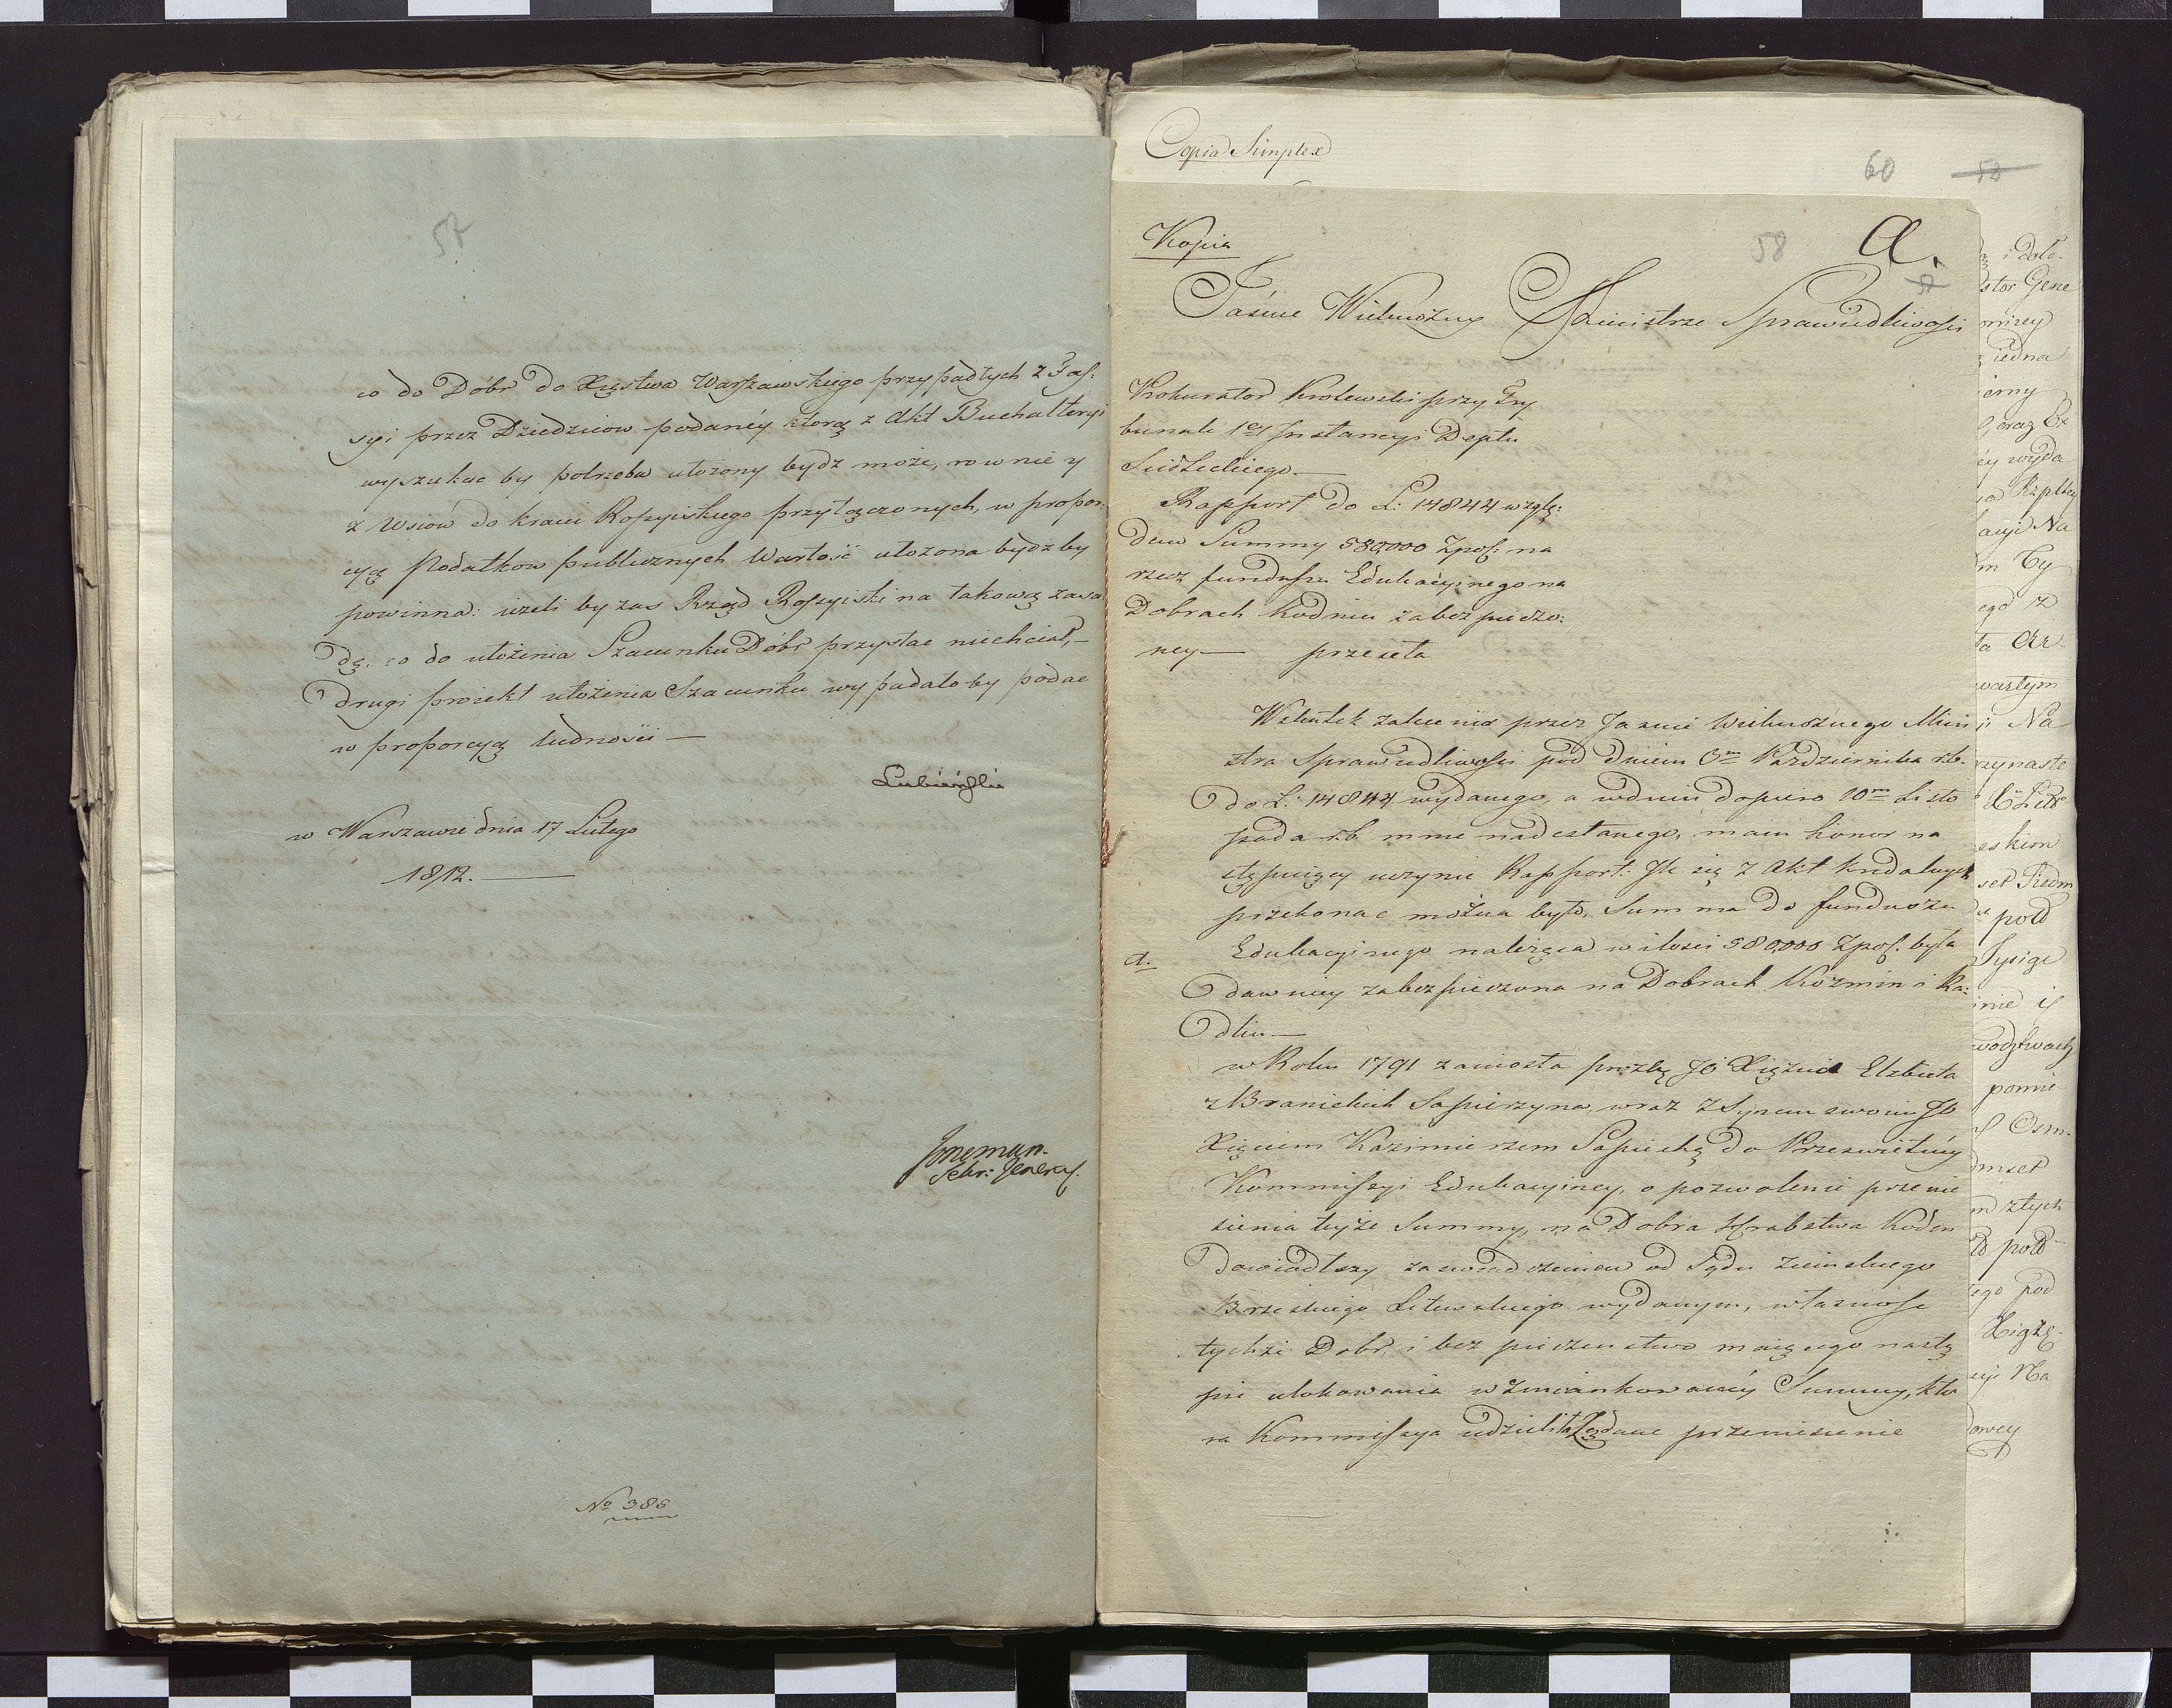 57
co do Dóbr do Xięstwa Warszawskiego przypadłych z Fas-
syi przez Dziedziców podanéy którą z Akt Buchalteryi
wyszukać by potrzeba ułożony bydź może, rownie y
z Wsiow do kraiu Rossyiskiego przyłączonych, w propor-
cyą Podatkow publicznych Wartość ułożona bydź by
powinna: ieżeli by zas Rząd Rossyiski na takową zasa
dę, co do ułożenia Szacunku Dóbr przystać niechciał,—
drugi proiekt ułożenia Szacunku wypadało by podac
w proporcyą ludności —
Łubieński
w Warszawie dnia 17 Lutego
1812. —
Sekr: Jeneral.
No 386
Copia Simplex
60 58
Kopia
58 A.
57
Jaśnie Wielmożny Ministrze Sprawiedliwości
Prokurator Krolewski przy Try
bunale 1ey Instancyi Deptu
Siedleckiego —
Rapport do L: 14844 wzglę:
dem Summy 580,000 Zpol: na
rzecz funduszu Edukacyinego na
Dobrach Kodniu zabezpieczo:
ney — przeseła
Wskutek zalecenia przez Jasnie Wielmożnego Mini
stra Sprawiedliwosci pod dniem 6m Października rb.
do L: 14844 wydanego, a wdniu dopiero 10m Listo
pada r.b. mnie nadesłanego, mam honor na
stępuiący uczynic Rapport: Jle się z Akt
przekonac można było, Summa do funduszu
Edukacyinego należąca w ilosci 580,000 Zpol. była
a.
dawniey zabezpieczona na Dobrach Kozmin i Ra:
dlin —
w Roku 1791 zaniosła prozbę JO Xiężna Elzbieta
z Branickich Sapieżyna, wraz z Synem swoim JO
Xięciem Kazimierzem Sapiehą do Prześwietnéy
Kommissyi Edukacyiney, o pozwolenie przenie
sienia teyże Summy, na Dobra Hrabstwa Koden
dowiodłszy zaswiadczeniem od Sądu Ziemskiego
Brzeskiego Litewskiego wydanym, własnosc
tychże Dobr i bezpieczenstwo maiącego nastą
pic ulokowania wzmiankowanéy Summy, któ
ra Kommissya udzieliła Żądane przeniesienie
i dole-
ktor Gene
iedna
oraz Ex
éy wyda
Rzpltey
acyi Na
m Cy
ego z
ta Ar
wartym
i Na
zynaste
X Lit
eskim
set Siedm
pod
Tysiąc
inie iż
wodztwach
pomie
Osm-
dmset
m złtych
ego pod
Xiąże
cyi Na
dowey